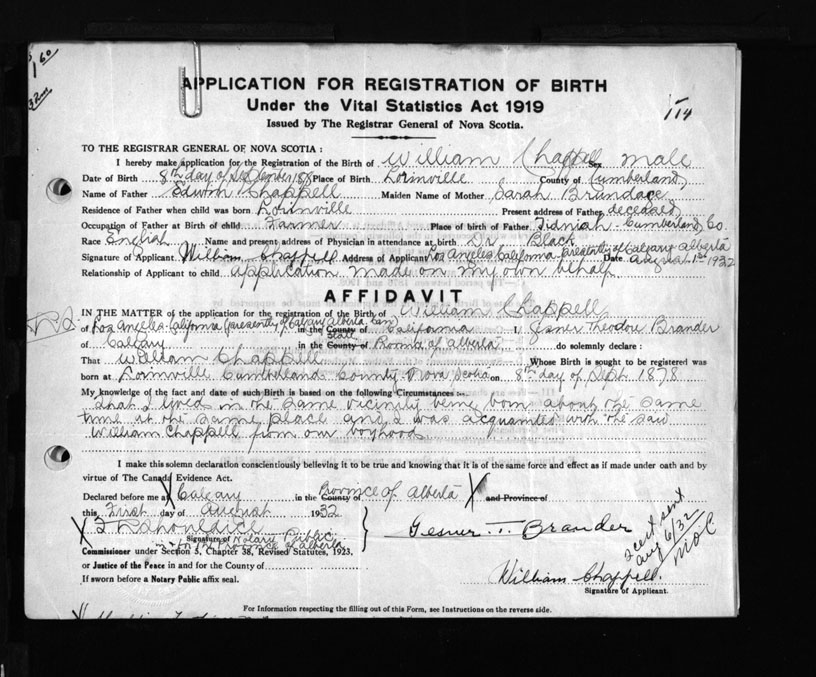 $1.00
32
APPLICATION FOR REGISTRATION OF BIRTH
Under the Vital Statistics Act 1919
Issued by The Registrar General of Nova Scotia.
114
TO THE REGISTRAR GENERAL OF NOVA SCOTIA :
I hereby make application for the Registration of the Birth of William Chappell Sex male
Date of Birth 8th day of September 1878 Place of Birth Lorinville County of Cumberland
Name of Father Edwin Chappell Maiden Name of Mother Sarah Brandace
Residence of Father when child was born Lorinville Present address of Father deceased
Occupation of Father at Birth of child Farmer Place of birth of Father Tidnish Cumberland Co.
Race English Name and present address of Physician in attendance at birth Dr Black
Signature of Applicant William Chappell Address of Applicant Los Angeles California presently of Calgary Alberta Date August 1st 1932
Relationship of Applicant to child application made on my own behalf
AFFIDAVIT
IN THE MATTER of the application for the registration of the Birth of William Chappell
of Los Angeles California (presently of Calgary Alberta Can) in the County of State California I, Gesner Theodore Brander
of Calgary in the County of Province of Alberta do solemnly declare :
That William Chappell Whose Birth is sought to be registered was
born at Lorinville Cumberland County Nova Scotia on 8th day of Sept 1878
My knowledge of the fact and date of such Birth is based on the following Circumstances :
that I lived in the same vicinity being born about the same
time at the same place and I was acquainted with the said
William Chappell from our boyhoods
I make this solemn declaration conscientiously believing it to be true and knowing that it is of the same force and effect as if made under oath and by
virtue of The Canada Evidence Act.
Declared before me at Calgary in the County of Province of Alberta X and Province of
this First day of August 1932
X Shouldice
Signature of Notary Public
in & for the Province of Alberta
Gesner T. Brander
Commissioner under Section 3, Chapter 38, Revised Statutes, 1923,
or Justice of the Peace in and for the County of
If sworn before a Notary Public affix seal.
William Chappell.
Signature of Applicant.
2 cert sent
Aug 6/32
MOC
For Information respecting the filling out of this Form, see Instructions on the reverse side.